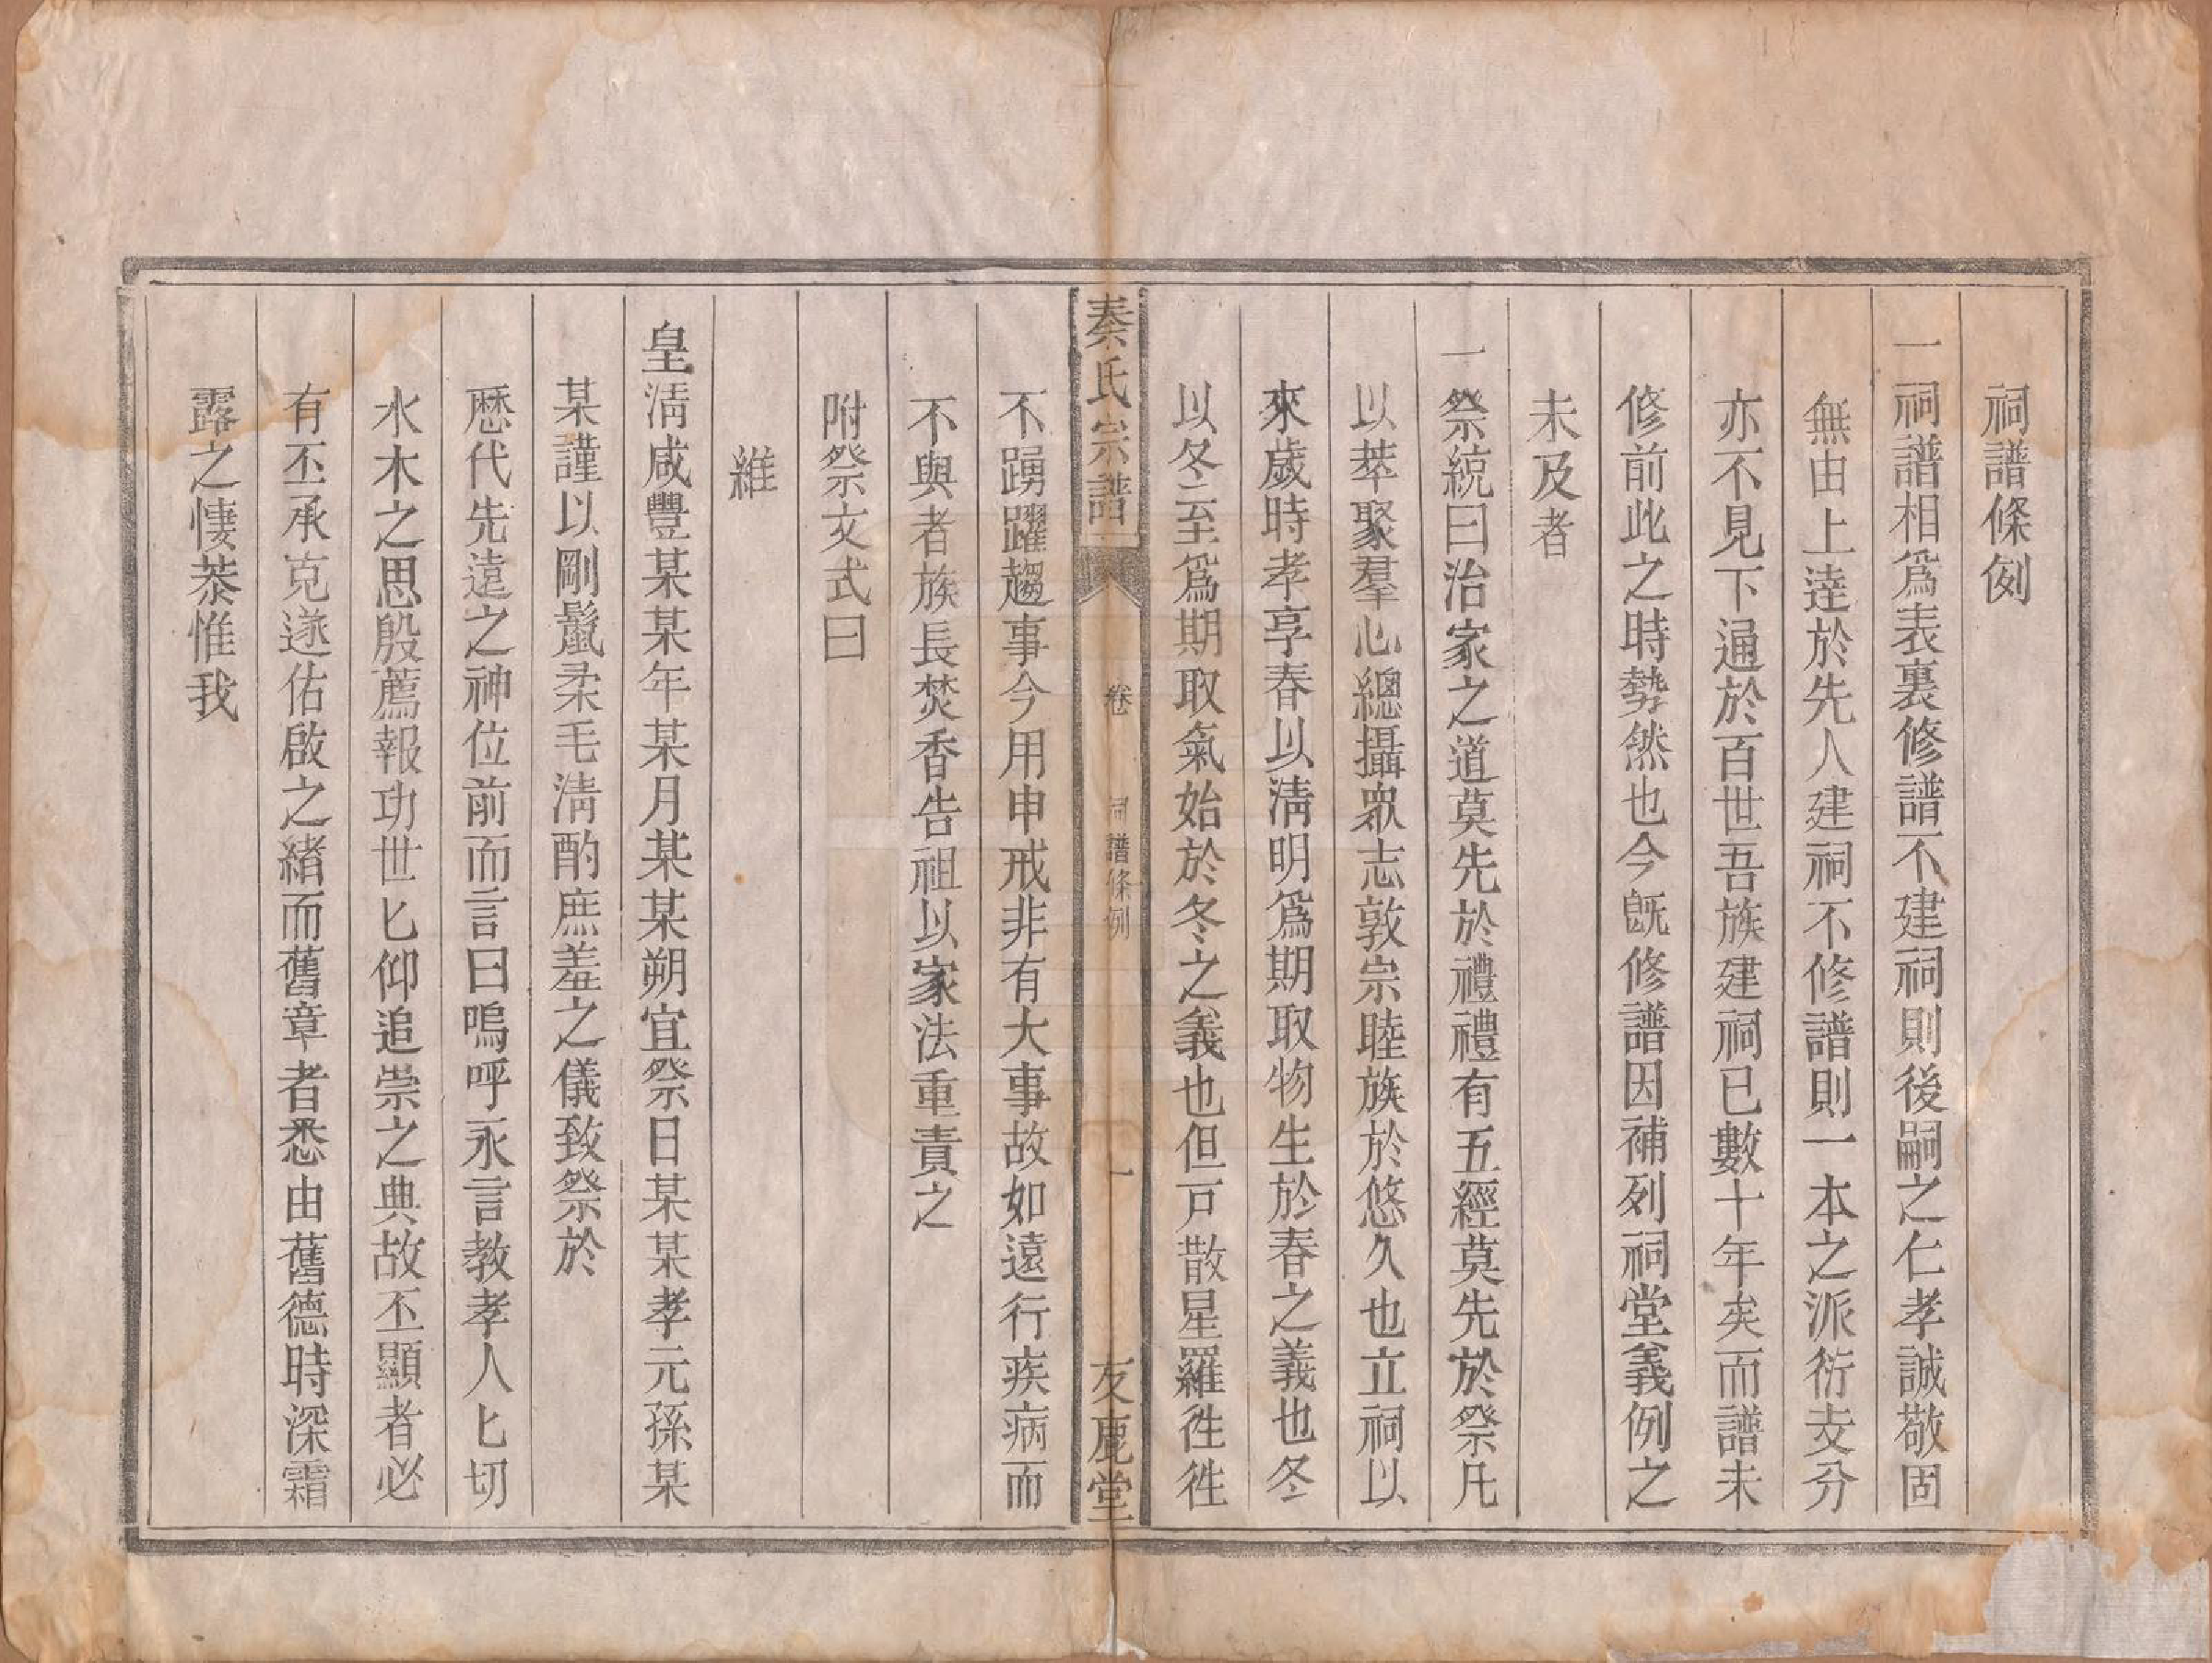 祠譜條例
一祠譜相爲表裏修譜不建祠則後嗣之仁孝誠敬固
無由上逹於先人建祠不修譜則一本之派衍支分
亦不見下通於百世吾族建祠已數十年矣而譜未
修前此之時勢然也今旣修譜因補列祠堂義例之
未及者
一祭統曰治家之道莫先於禮禮有五經莫先於祭凡
以萃聚羣心總攝衆志敦宗睦族於悠久也立祠以
來歲時孝享春以淸明爲期取物生於春之義也冬
以冬至爲期取氣始於冬之義也但戸散星羅徃徃
秦氏宗譜
卷 祠譜條例
一
友鹿堂
不踴躍趨事今用申戒非有大事故如遠行疾病而
不與者族長焚香告祖以家法重責之
附祭文式曰
維
皇淸咸豐某某年某月某某朔宜祭日某某孝元孫某
某謹以剛鬣柔毛淸酌庶羞之儀致祭於
歷代先遠之神位前而言曰嗚呼永言敎孝人匕切
水木之思殷薦報功世匕仰追崇之典故丕顯者必
有丕承克遂佑啟之緖而舊章者悉由舊德時深霜
露之悽恭惟我